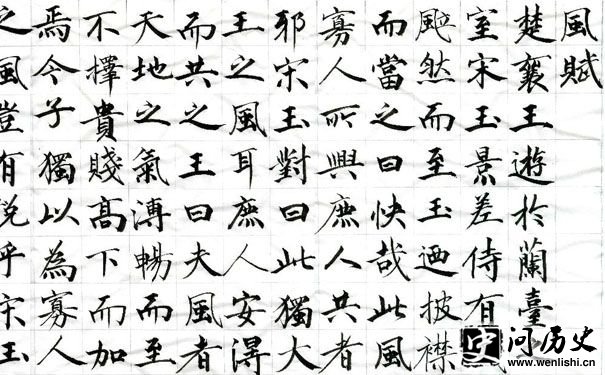 風賦
楚襄王遊於蘭臺
室宋玉景差侍有
颯然而至玉迺披襟
而當之曰快哉此風
寡人所與庶人共者
邪宋玉對曰此獨大
王之風耳庶人安得
而共之王曰夫風者
天地之氣溥暢而至
不擇貴賤高下而加
焉今子獨以為寡人
之風豈有說乎宋玉
问历史
www.wenlishi.cn